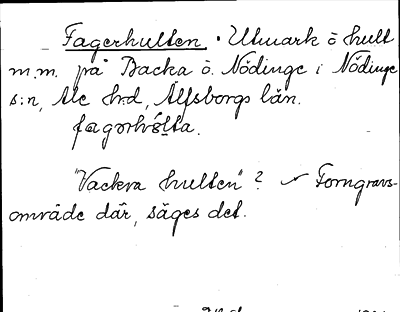 Fagerhulten. Utmark ö hult
m.m. på Backa ö. Nödinge i Nödinge
s:n, Ale hrd, Älfsborgs län.
"Vackra hulten"? Forngravs-
område där, säges det.